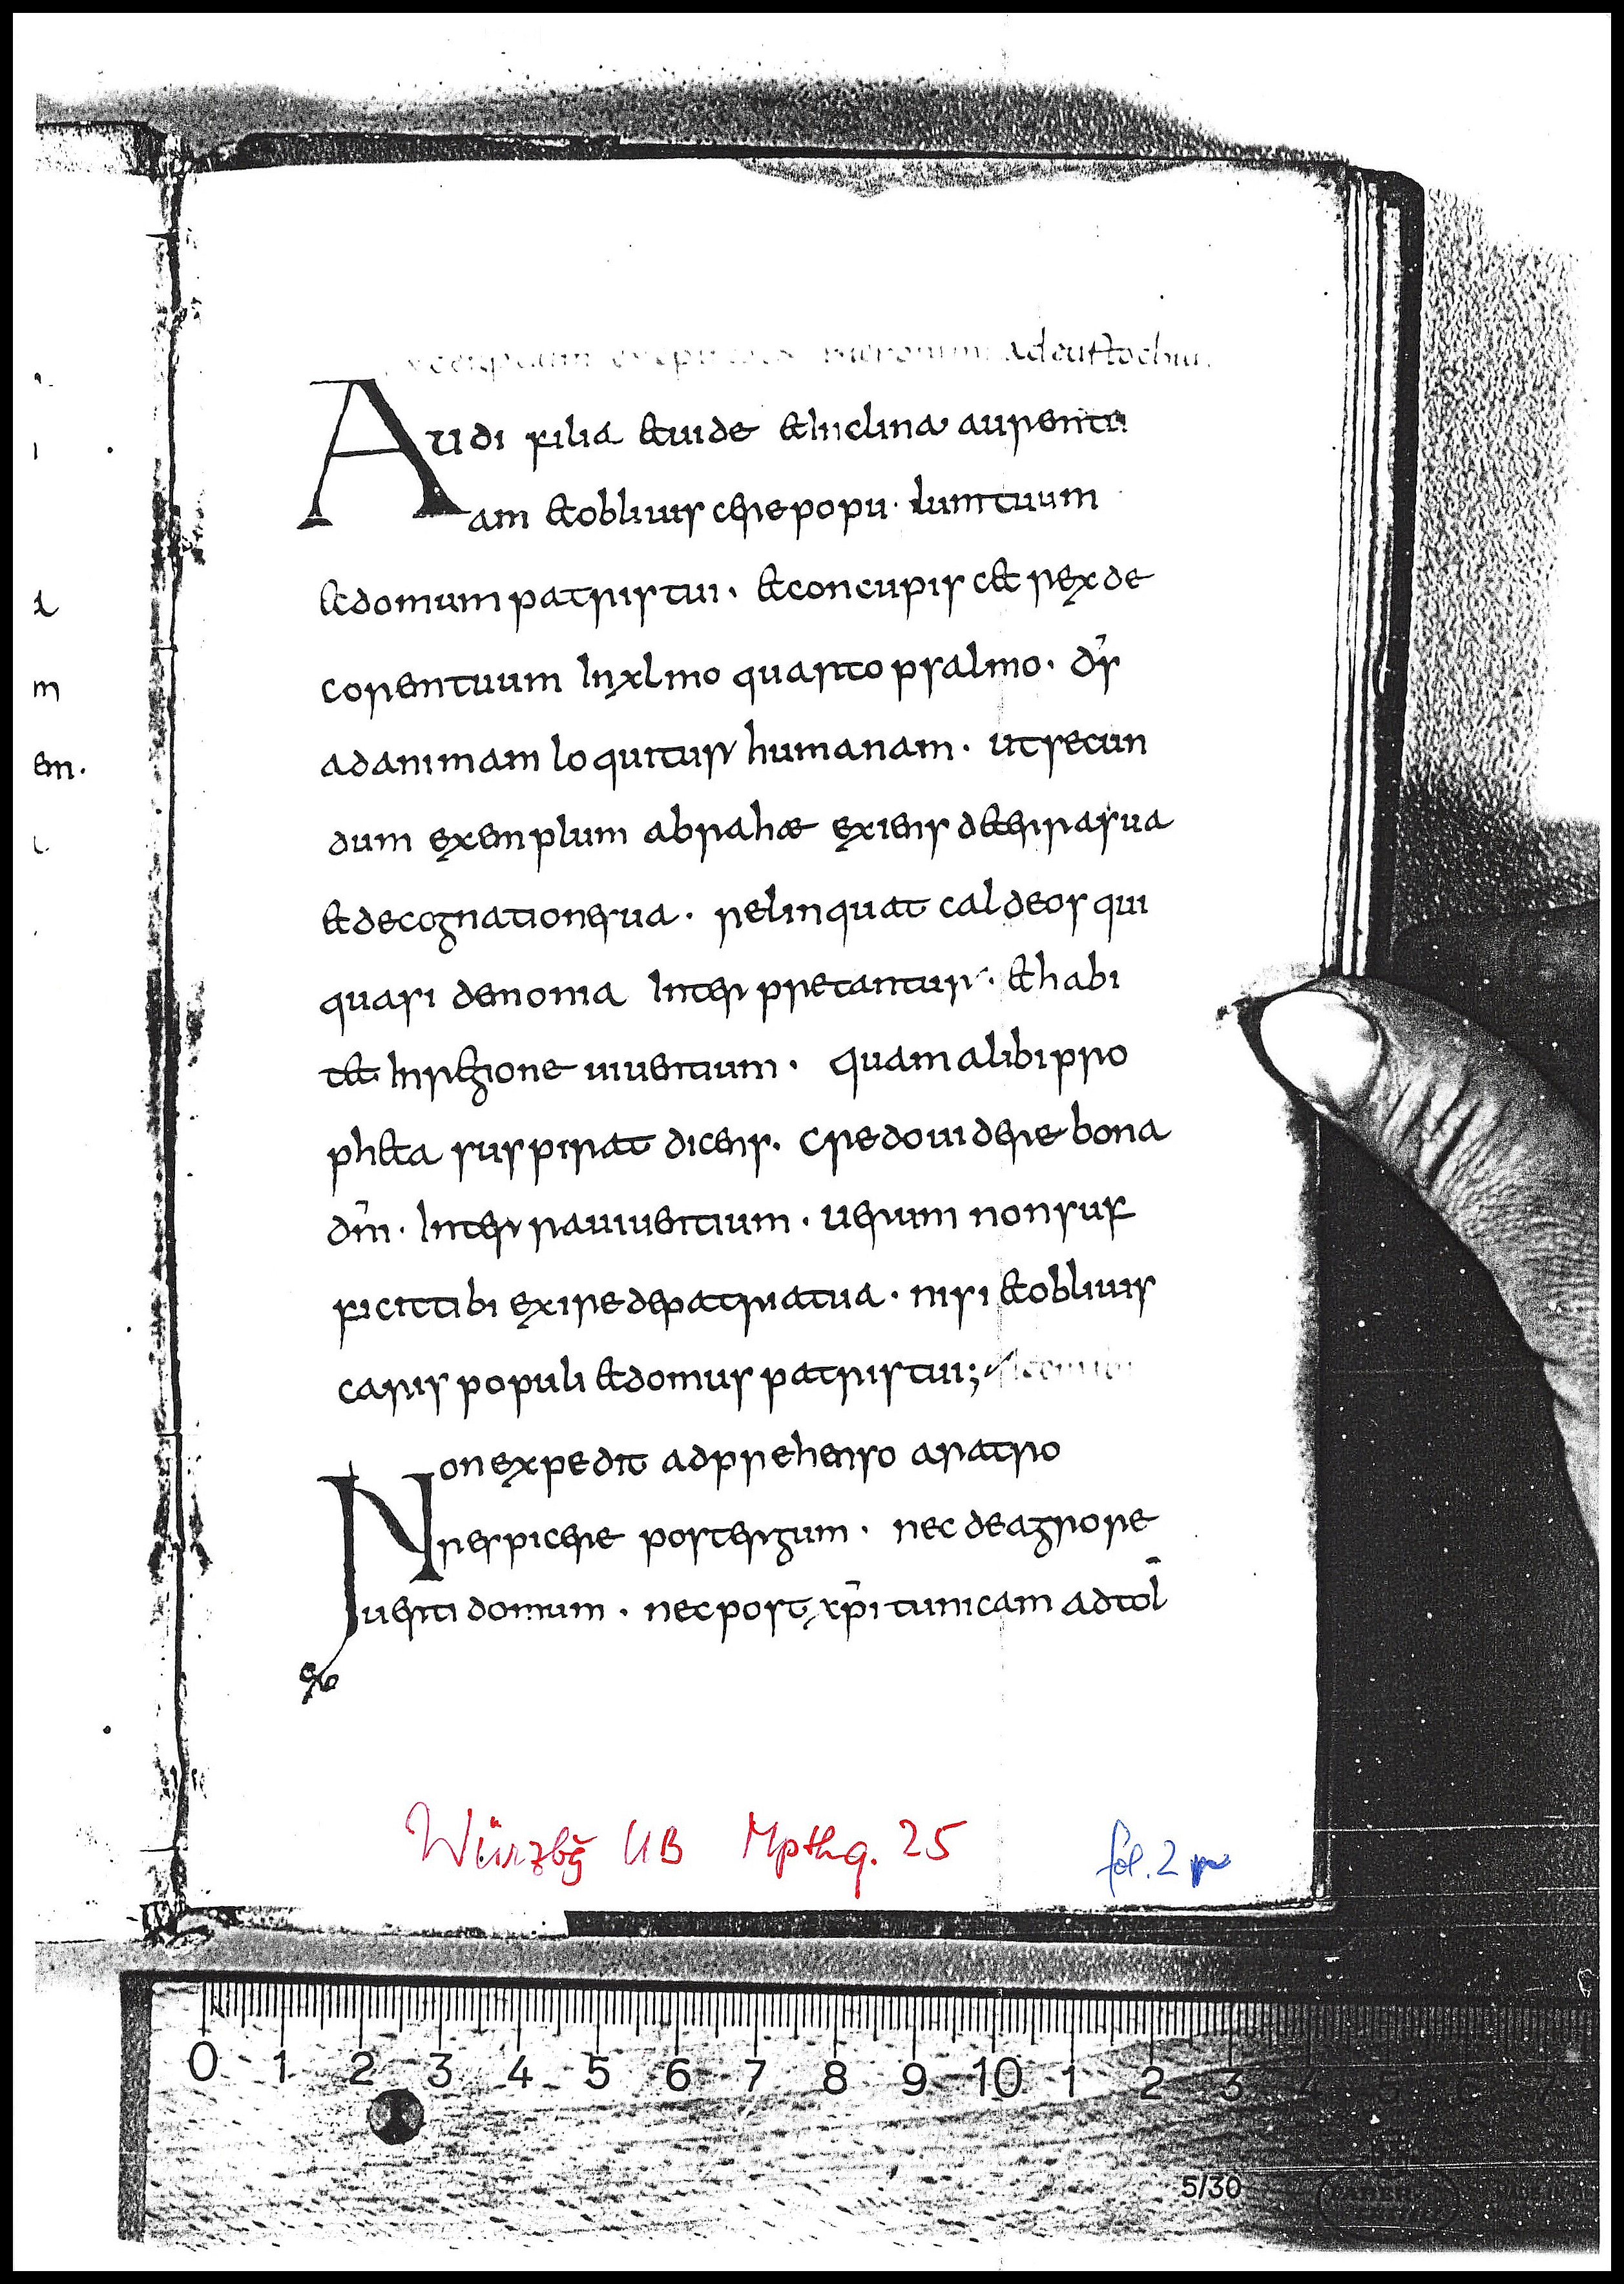 adeustochiu
Audi filia &uide &inclina aurentu
am &obliuis cerepopu· lumtuum
&domumpatristui· &concupisc& rexde
corentuum inxlmo quartopsalmo· d̄s
adanimam loquitur humanam· utsecun
dum exemplum abrahæ exiens d&errasua
&decognationesua· relinquat caldeos qui
quasi demonia interpretantur· &habi
t& inregione uiuentium· quamalibipro
ph&a suspirat dicens· credouiderebona
dn̄i· interrauiuentium· uerum nonsuf
ficittibi exiredepatriatua· nisi &obliuis
caris populi &domuspatristui;
Nonexpedit adprehenso aratro
respicere postergum· nec deagrore
uerti domum· necpost xp̄i tunicam adtol̄
a
m
em·
Würzbg UB Mpthq. 25
fol. 2 r
0 1 2 3 4 5 6 7 8 9 10 1 2 3 4 5 6 7
5/30